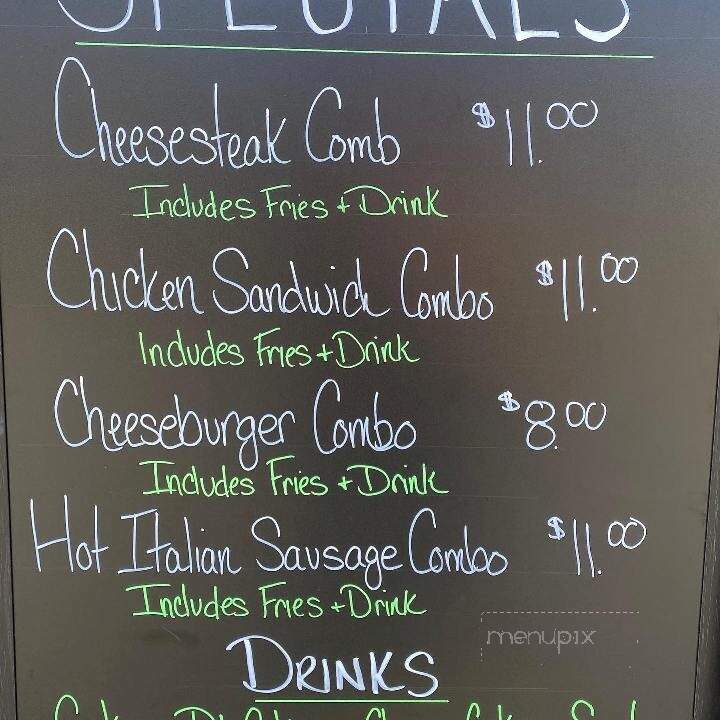 SPECIALS
Cheesesteak Comb $11.00
Includes Fries + Drink
Chicken Sandwich Combo $11.00
Includes Fries + Drink
Cheeseburger Combo $8.00
Includes Fries + Drink
Hot Italian Sausage Combo $11.00
Includes Fries + Drink
menupix
DRINKS